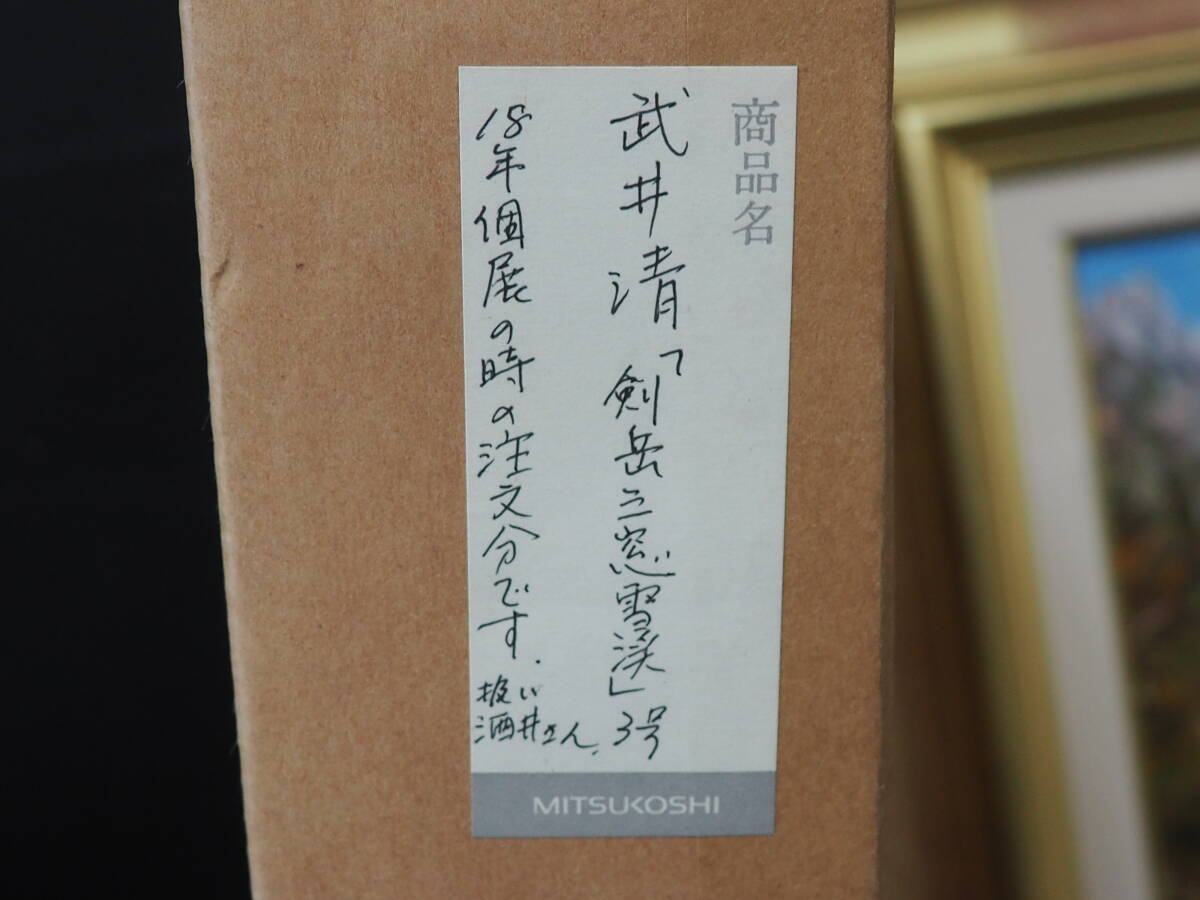 商品名
武井清「剣岳三窓雪渓」3号
18年個展の時の注文分です.
扱い
酒井さん.
MITSUKOSHI